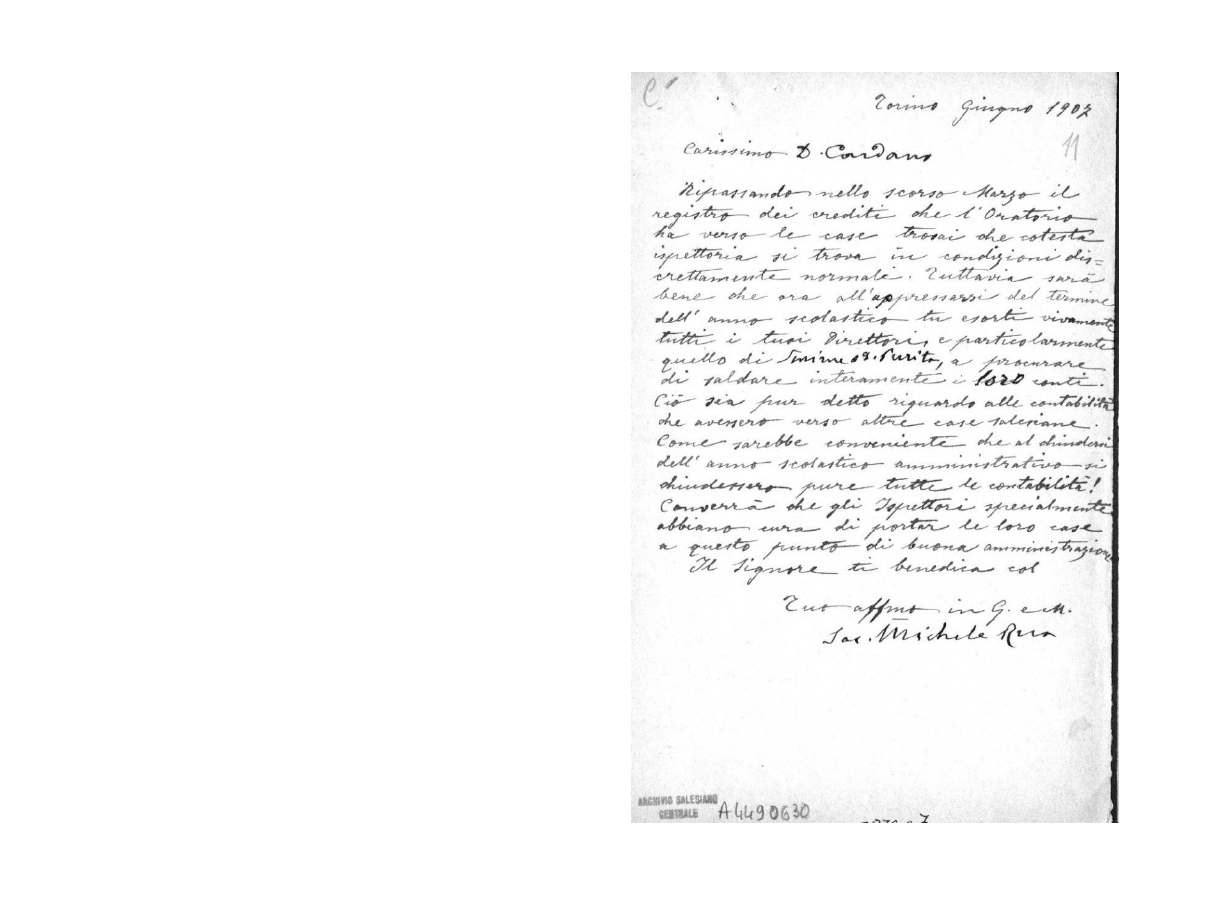 C
Torino Giugno 1907
11
Carissimo D. Cardano
Ripassando nello scorso Marzo il
registro dei crediti che l'Oratorio
ha verso le case trovai che cotesta
ispettoria si trova in condizioni dis=
crettamente normali. Tuttavia sarà
bene che ora all'appressarsi del termine
dell'anno scolastico tu esorti vivamente
tutti i tuoi Direttori, e particolarmente
quello di Smirne a procurare
di saldare interamente i loro conti.
Ciò sia pur detto riguardo alle contabilità
che avessero verso altre case salesiane.
Come sarebbe conveniente che al chiudersi
dell'anno scolastico amministrativo si
chiudessero pure tutte le contabilità!
Converrà che gli Ispettori specialmente
abbiano cura di portar le loro case
a questo punto di buona amministrazione
Il Signore ti benedica col
Tuo affmo in G. e M.
Sac. Michele Rua
ARCHIVIO SALESIANO
CENTRALE
A4490630